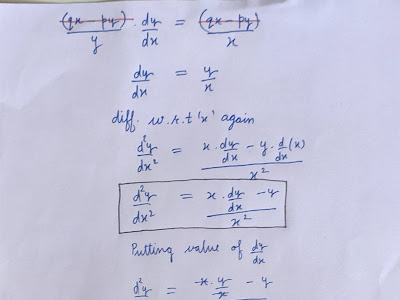 (qx - py)/y . dy/dx = (qx - py)/x
dy/dx = y/x
diff. w.r.t 'x' again
d²y/dx² = (x . dy/dx - y . d/dx (x))/x²
d²y/dx² = (x . dy/dx - y)/x²
Putting value of dy/dx
d²y = x . y/x - y